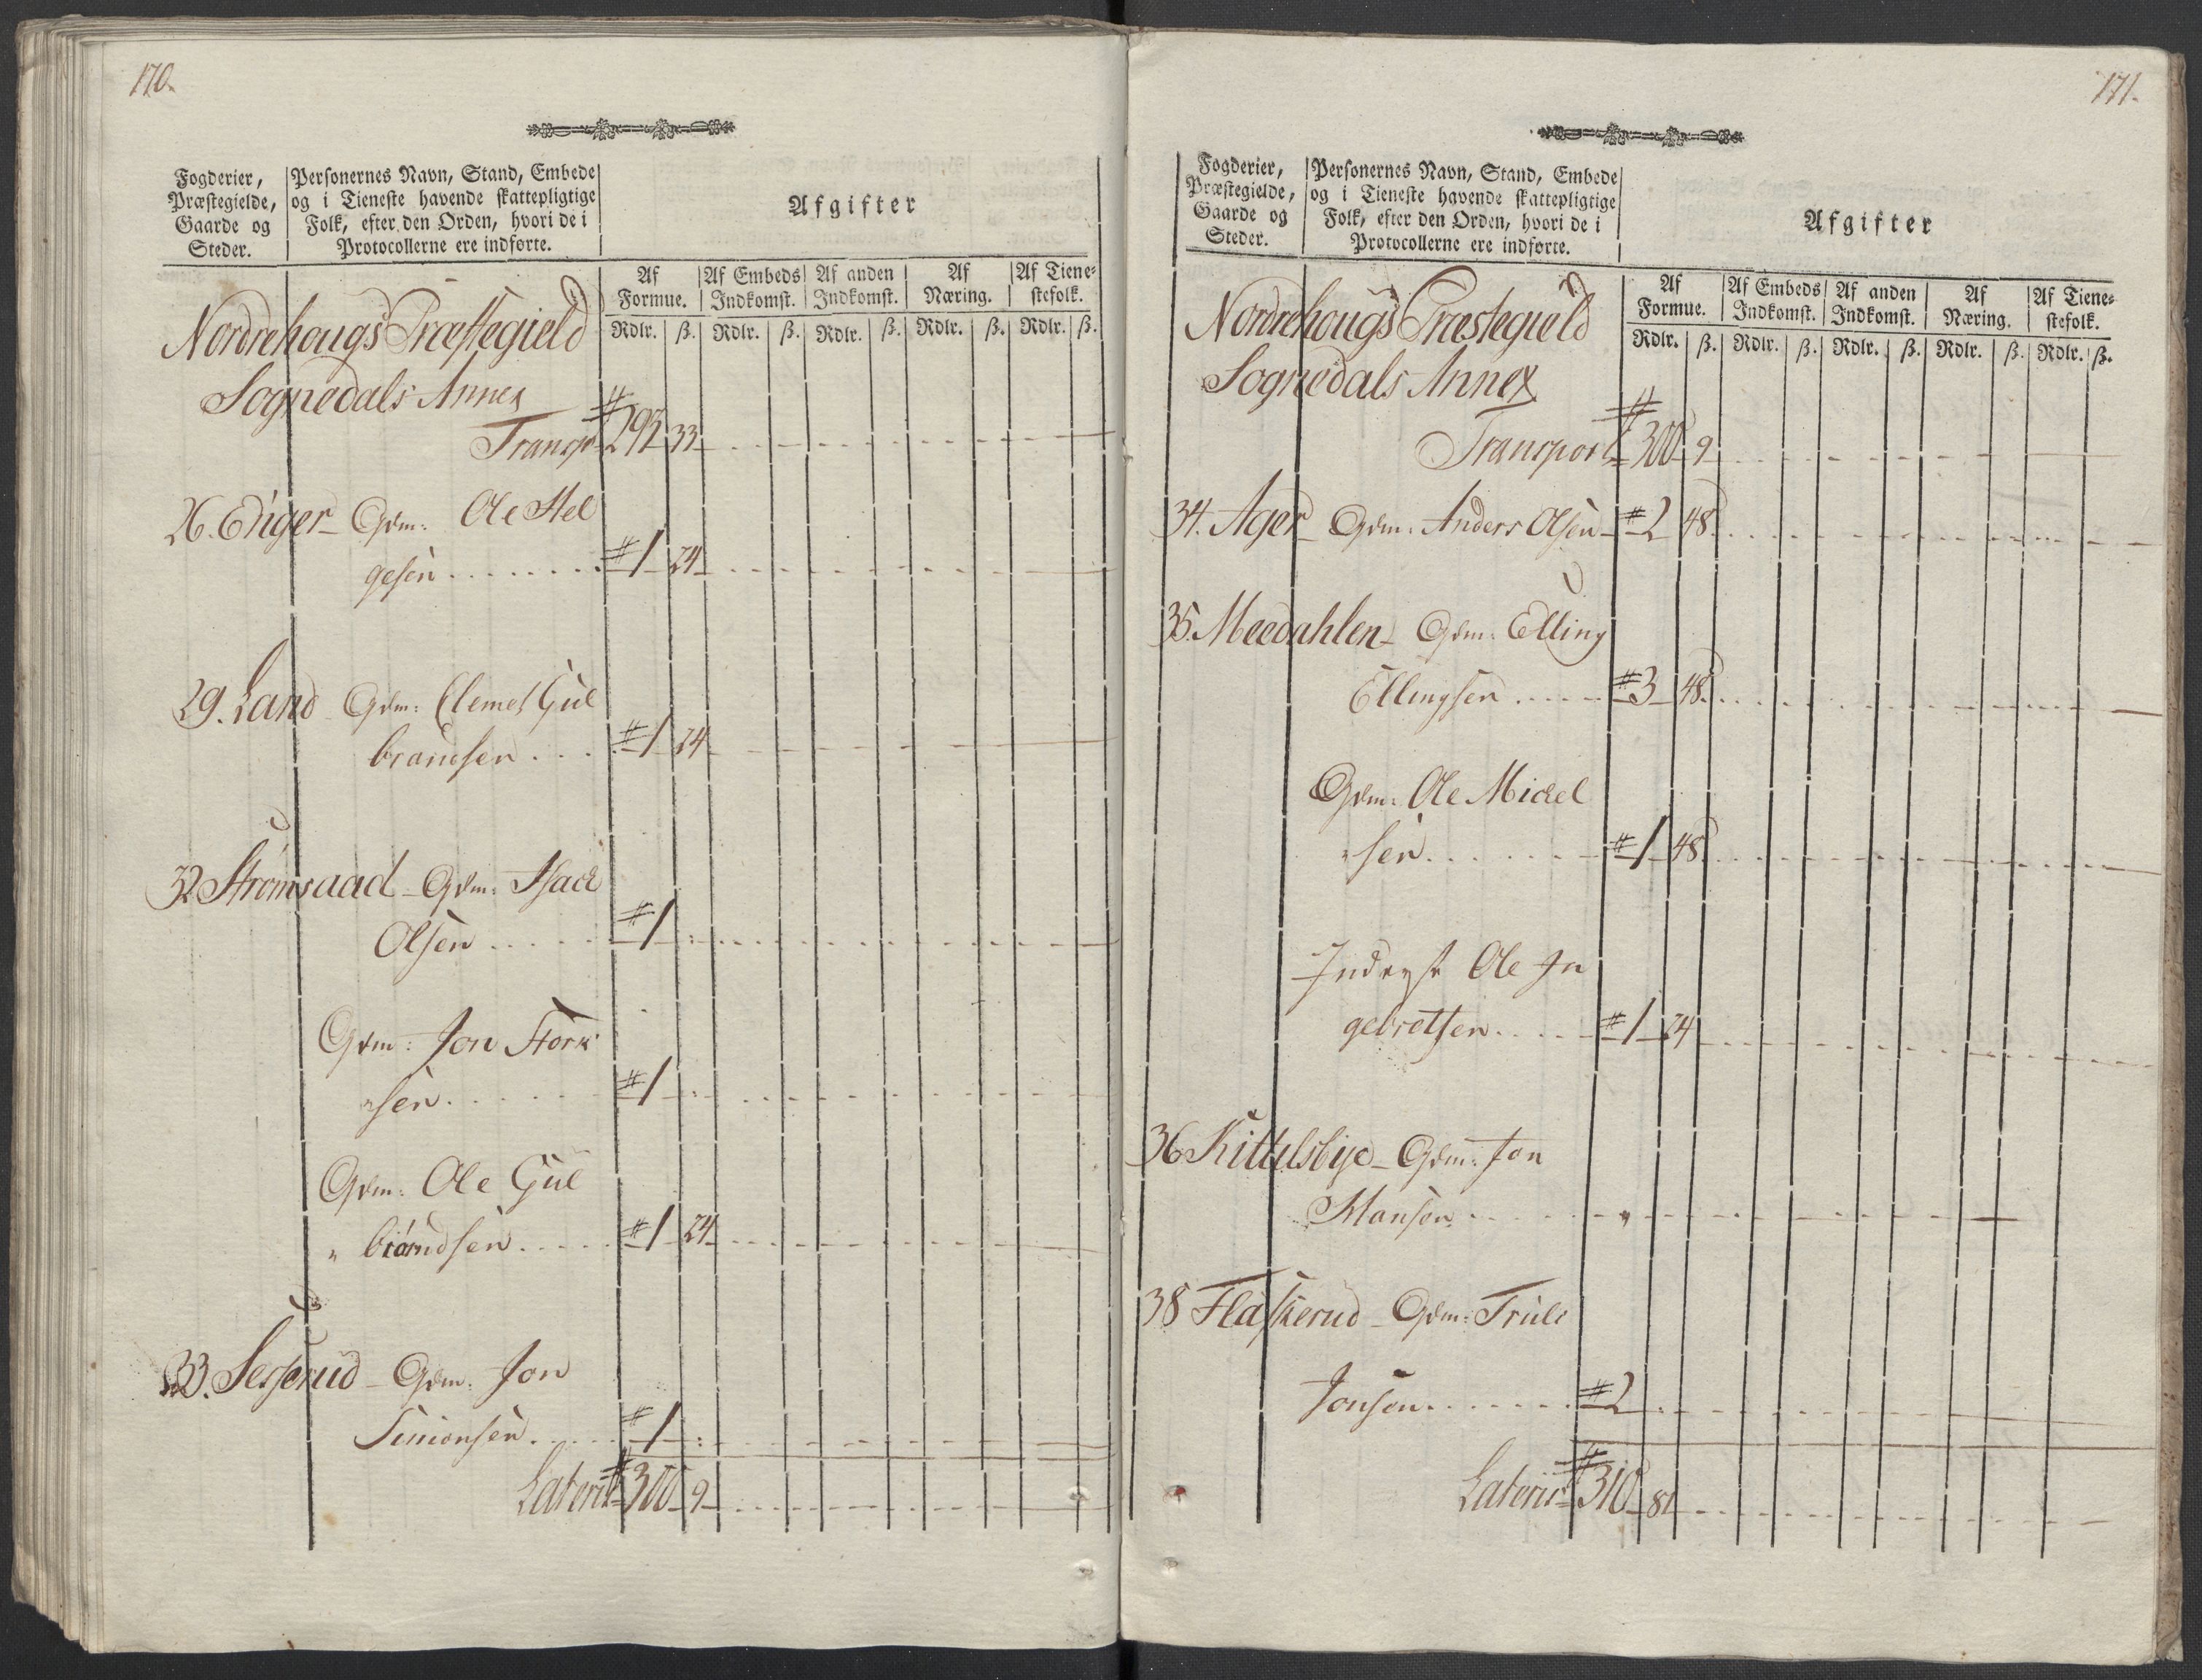 170.
Fogderier,
Præstegielde,
Gaarde og
Steder.
Personernes Navn, Stand, Embede
og i Tieneste havende skattepligtige
Folk, efter den Orden, hvori de i
Protocollerne ere indførte.
Afgifter
Af Formue. Af Embeds Indkomst. Af anden Indkomst. Af Næring. Af Tienestefolk.
Rdlr. ß. Rdlr. ß. Rdlr. ß. Rdlr. ß. Rdlr. ß.
Nordrehougs Præstegield
Sognedals Annex
Transp # 292 33
26. Enger Gdm: Ole Hel
gesen # 1 24
29. Land Gdm: Clemet Gul
brandsen # 1 24
32 Strømsaad Gdm: Isack
Olsen # 1
Gdm: Jon Stork
sen # 1
Gdm: Ole Gul
brandsen # 1 24
33. Sesserud Gdm: Jon
Simensen # 1
Lateris # 300 9
171.
Fogderier,
Præstegielde,
Gaarde og
Steder.
Personernes Navn, Stand, Embede
og i Tieneste havende skattepligtige
Folk, efter den Orden, hvori de i
Protocollerne ere indførte.
Afgifter
Af Formue. Af Embeds Indkomst. Af anden Indkomst. Af Næring. Af Tienestefolk.
Rdlr. ß. Rdlr. ß. Rdlr. ß. Rdlr. ß. Rdlr. ß.
Nordrehougs Præstegield
Sognedals Annex
Transport # 300 9
34. Ager Gdm: Anders Olsen # 2 48
35. Meedahlen Gdm: Elling
Ellingsen # 3 48
Gdm: Ole Mickel
sen # 1 48
Inderst Ole In
gebretsen # 1 24
36 Kittelsbye Gdm: Jon
Hansen "
38 Flaskerud Gdm: Truls
Jonsen # 2
Lateris # 310 81